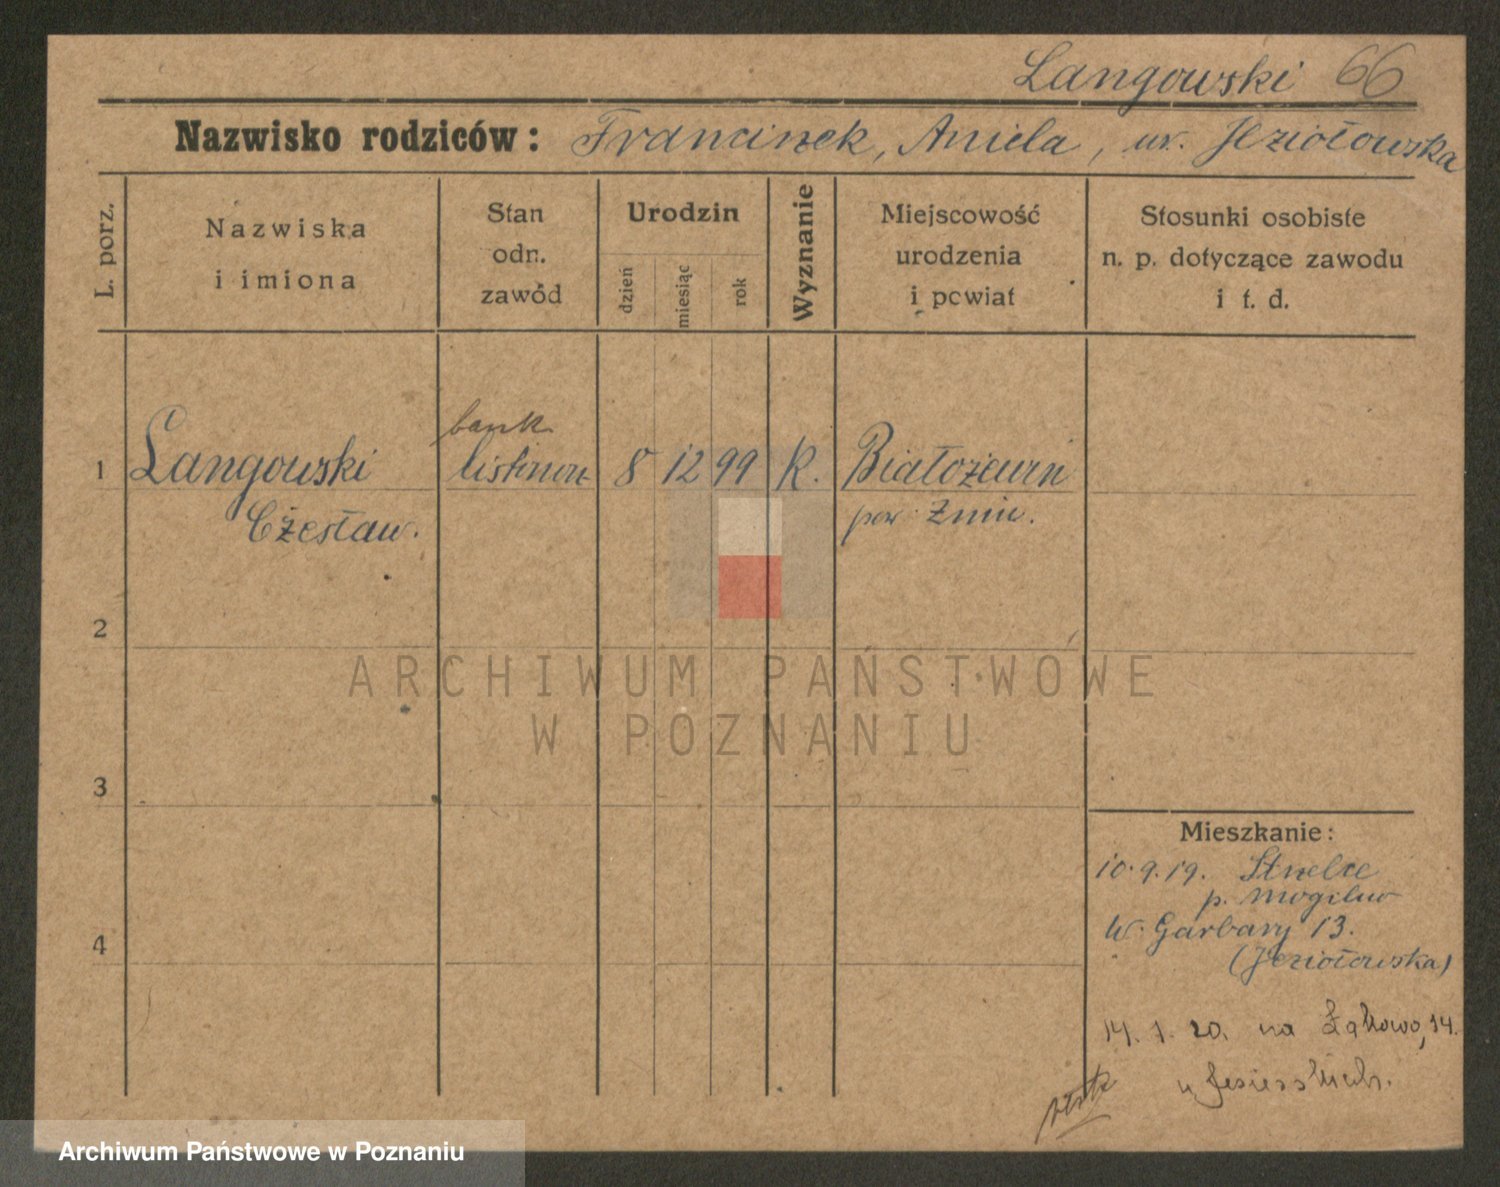 Langowski 66
Nazwisko rodziców: Francinek, Aniela, ur. Jeziołowska
L. porz.
Nazwiska
i imiona
Stan
odn.
zawód
Urodzin
dzień
miesiąc
rok
Wyznanie
Miejscowość
urodzenia
i powiat
Stosunki osobiste
n. p. dotyczące zawodu
i t. d.
bank
1 Langowski 8 12 99 K. Białożewin
Czesław. pow. Żnin.
2
ARCHIWUM PAŃSTWOWE
W POZNANIU
3
Mieszkanie:
10.9.19. Strzelce
p. Mogilno
W. Garbary 13.
4
(Jeziołowska)
14. 1. 20. na Łąkowo, 14.
u
Archiwum Państwowe w Poznaniu